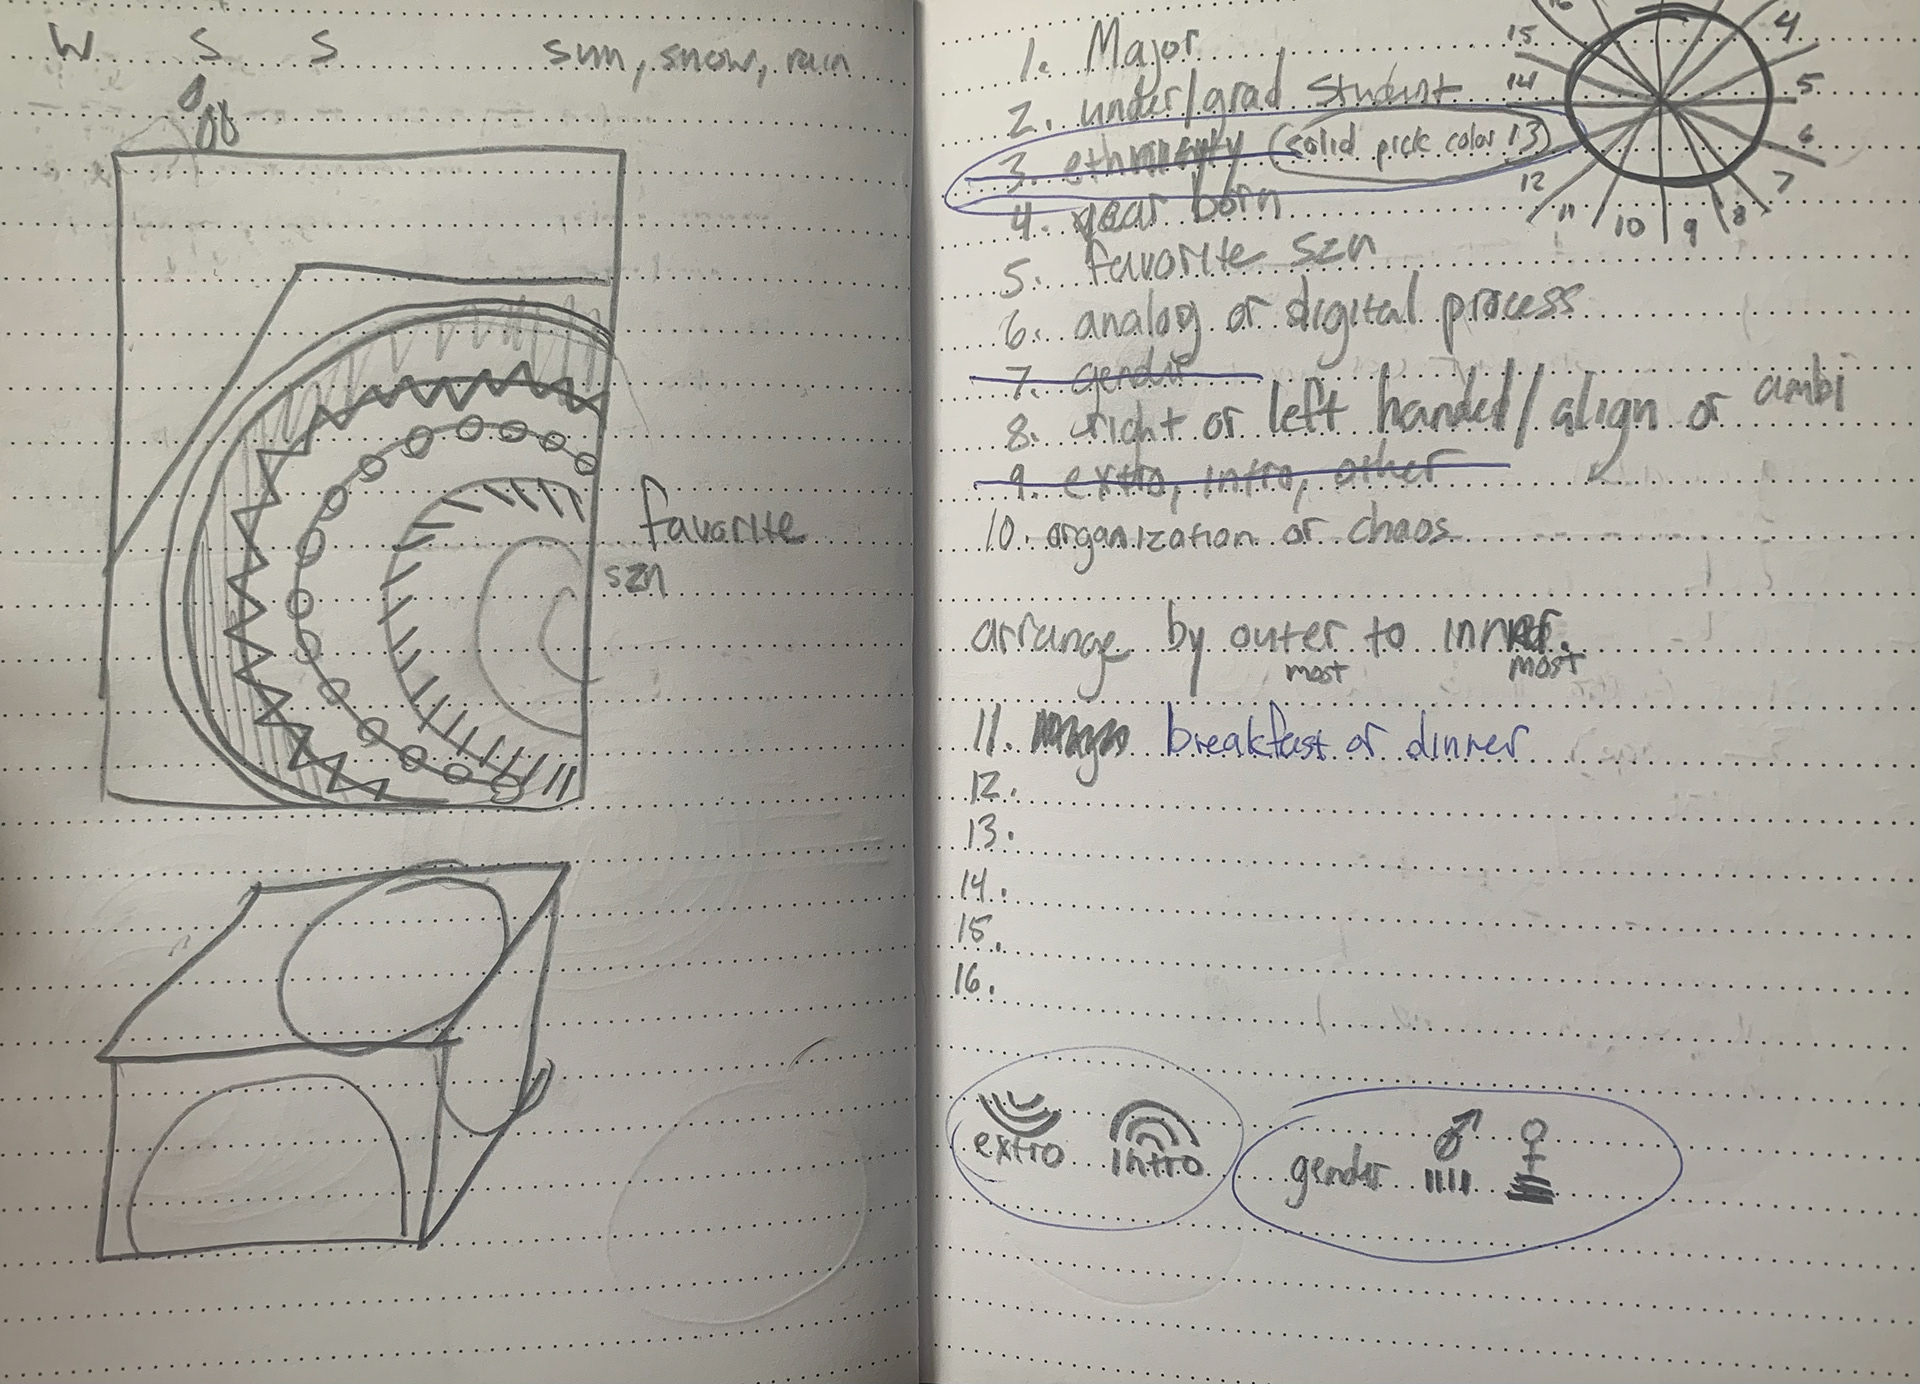 W S S sun, snow, rain
favorite
szn
1. Major
2. under/grad student
3. ethnicity (solid pick color 13)
4. year born
5. favorite szn
6. analog or digital process
7. gender
8. right or left handed/align or ambi
9. extro, intro, other
10. organization or chaos
arrange by outer to inner.
most most
11. breakfast or dinner
12.
13.
14.
15.
16.
extro intro
gender
16
15
14
12
11
10
9
8
7
6
5
4